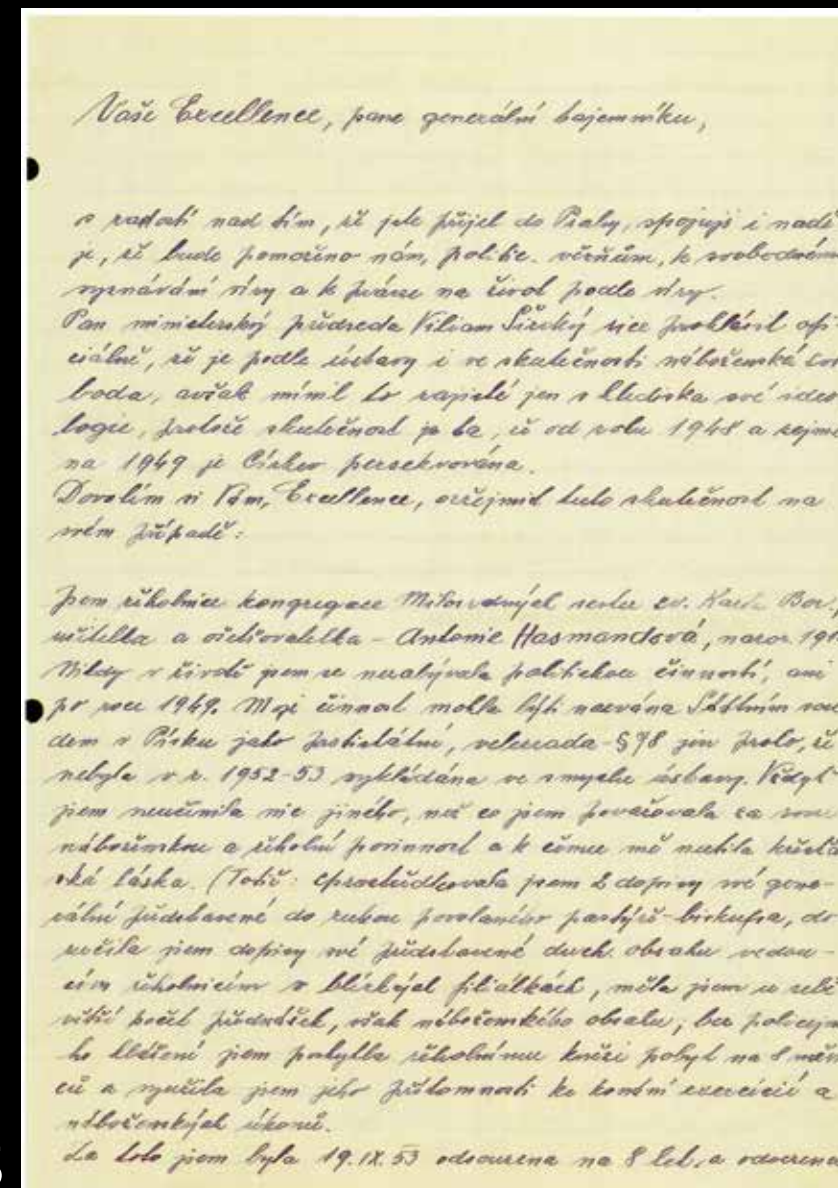 Vaše Excellence, pane generální tajemníku,
s radostí nad tím, že jste přijel do Prahy, spojuji i nadě
je, že bude pomoženo nám, politic. vězňům, k svobodném
vyznávání víry a k práci na život podle víry.
Pan ministerský předseda Viliam Široký sice prohlásil ofi
ciálně, že je podle ústavy i ve skutečnosti náboženská svo
boda, avšak mínil to zajisté jen s hlediska své ideo
logie, protože skutečnost je ta, že od roku 1948 a zejmé
na 1949 je Církev persekvována.
Dovolím si Vám, Excellence, ozřejmit tuto skutečnost na
svém případě:
Jsem řeholnice kongregace Milosrdných sester sv. Karla Bor.,
učitelka a ošetřovatelka - Antonie Hasmandová, naroz. 191
Nikdy v životě jsem se nezabývala politickou činností, ani
po roce 1949. Moje činnost mohla býti nazvána Státním sou
dem v Písku jako protistátní, velezrada - §78 jen proto, že
nebyla v r. 1952-53 vykládána ve smyslu ústavy. Vždyť
jsem neučinila nic jiného, než co jsem považovala za svou
náboženskou a řeholní povinnost a k čemu mě nutila křesťa
ská láska. (Totiž: zprostředkovala jsem 2 dopisy své gene-
rální představené do rukou povolaného pastýře-biskupa, do
ručila jsem dopisy své představené duch. obsahu vedou-
cím řeholnicím v blízkých filiálkách, měla jsem u sebe
větší počet přednášek, však náboženského obsahu; bez policejní
ho hlášení jsem poskytla řeholnímu knězi pobyt na 8 měsí
ců a využila jsem jeho přítomnosti ke konání exercicií a
náboženských úkonů.
Za toto jsem byla 19.IX.53 odsouzena na 8 let, a odvezena